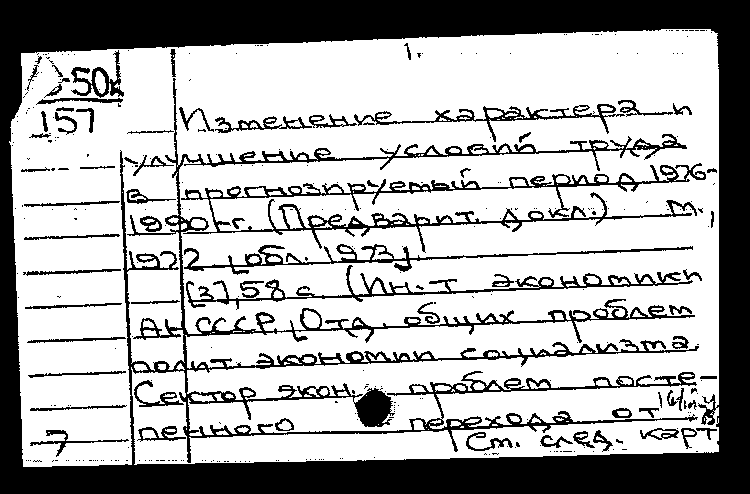 1.
-50к
157
Изменение характера и
улучшение условий труда
в прогнозируемый период 1976-
1990 гг. (Предварит. докл.) М.,
1972 [обл. 1973].
[3], 58 с. (Ин-т экономики
АН СССР. [Отд. общих проблем
полит. экономии социализма.
Сектор экон. проблем посте-
пенного перехода от
7 См. след. карт.